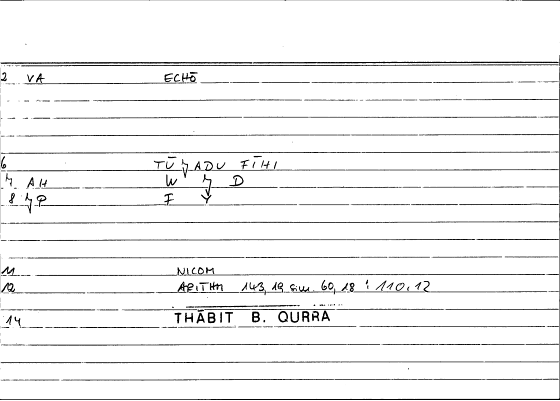 2 VA ECHŌ
6 TŪϟADU FĪHI
7 AH W ϟ D
8 ϟP F Y
11 NICOM
12 ARITHM 143,19 sim. 60,18 : 110,12
14 THĀBIT B. QURRA